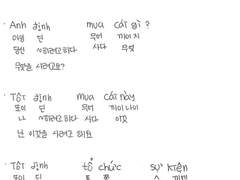 · Anh định mua cái gì ?
아잉 딘 무어 까이 지
당신 ~하려고하다 사다 무엇
무엇을 사려고요?
· Tôi định mua cái này
또이 딘 무어 까이 나이
나 ~하려고하다 사다 이것
난 이것을 사려고 해요
· Tôi định tổ chức sự kiện
또이 딘